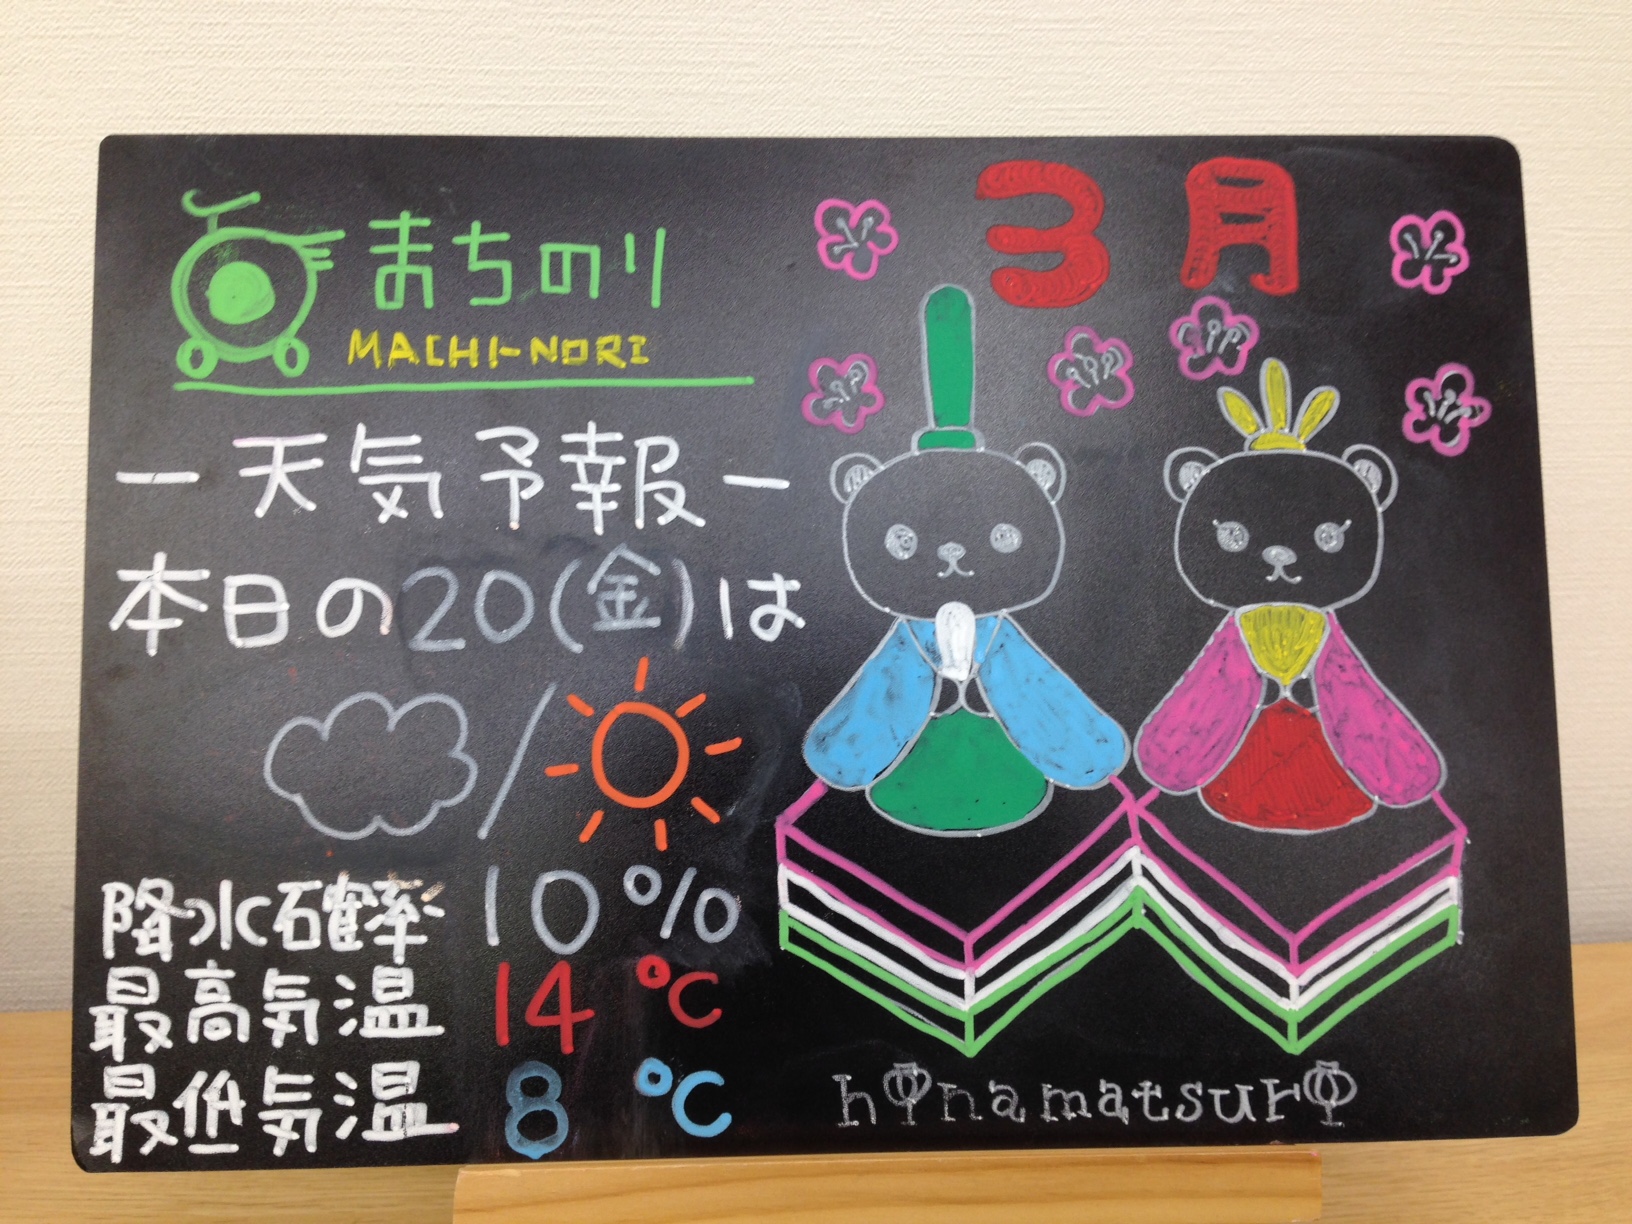 まちのり
MACHI-NORI
3月
－天気予報－
本日の20(金)は
降水確率 10%
最高気温 14℃
最低気温 8℃
hinamatsuri